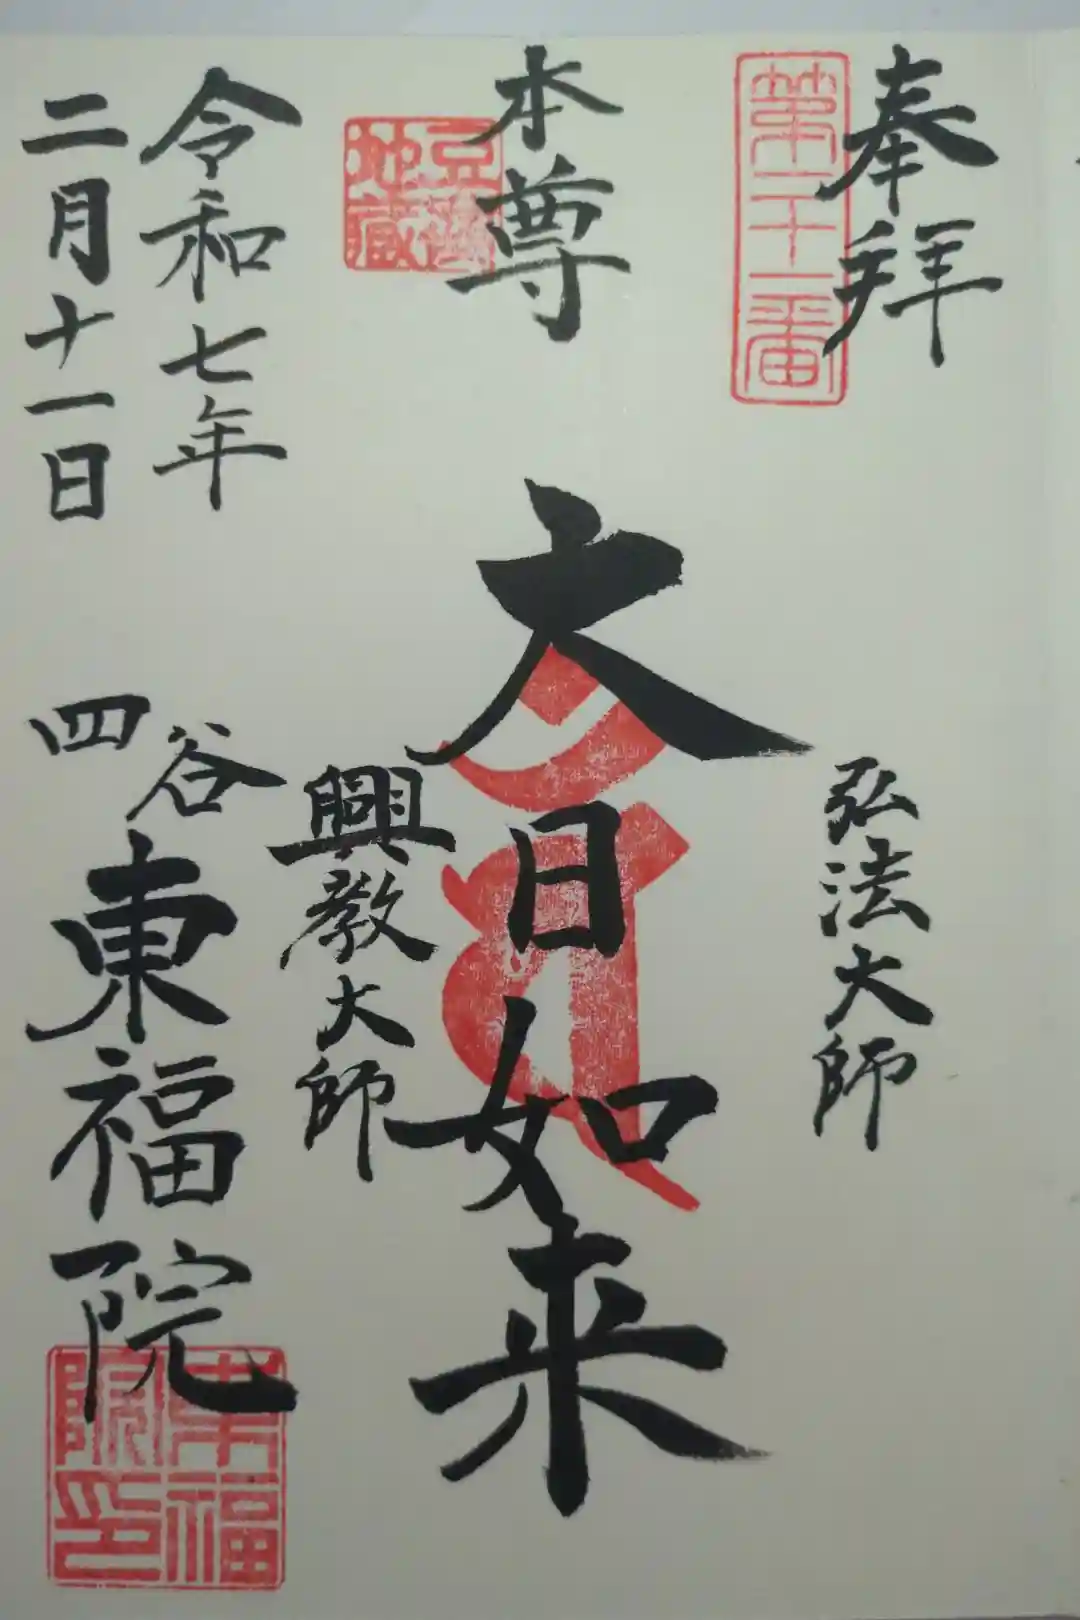 奉拝
第二十一番
弘法大師
本尊
大日如来
豆腐
地蔵
興教大師
令和七年
二月十一日
四谷
東福院
東福
院印